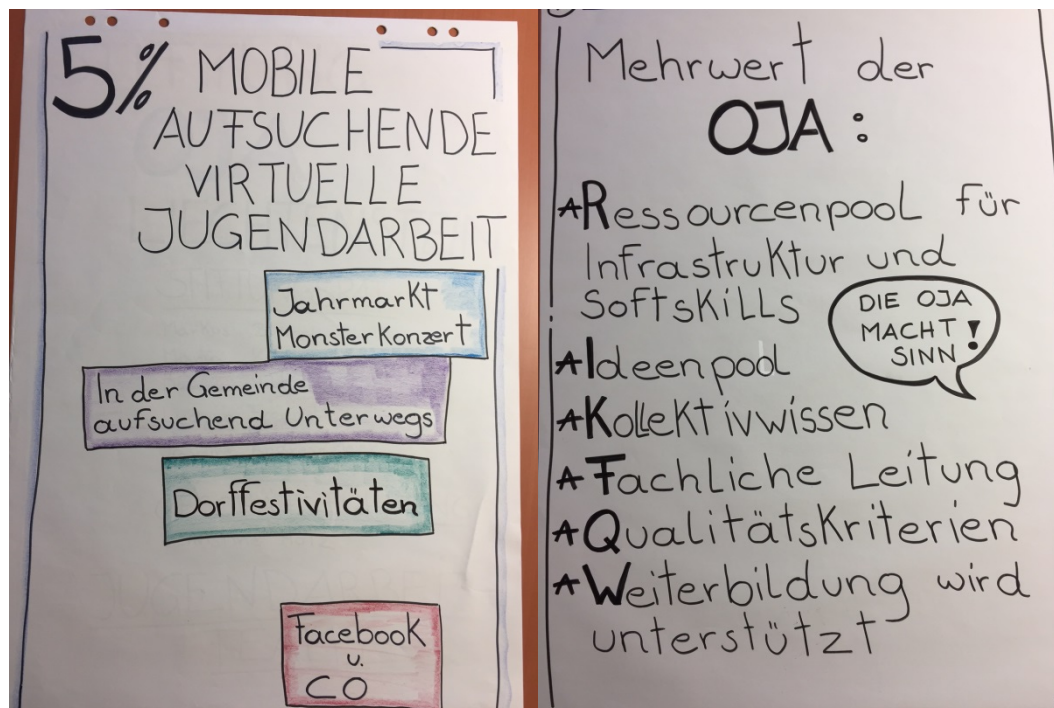 5% MOBILE
AUFSUCHENDE
VIRTUELLE
JUGENDARBEIT
Jahrmarkt
Monsterkonzert
In der Gemeinde
aufsuchend Unterwegs
Dorffestivitäten
Facebook
u.
CO
Mehrwert der
OJA:
Ressourcenpool für
Infrastruktur und
Softskills
DIE OJA
MACHT
SINN!
Ideenpool
Kollektivwissen
Fachliche Leitung
Qualitätskriterien
Weiterbildung wird
unterstützt